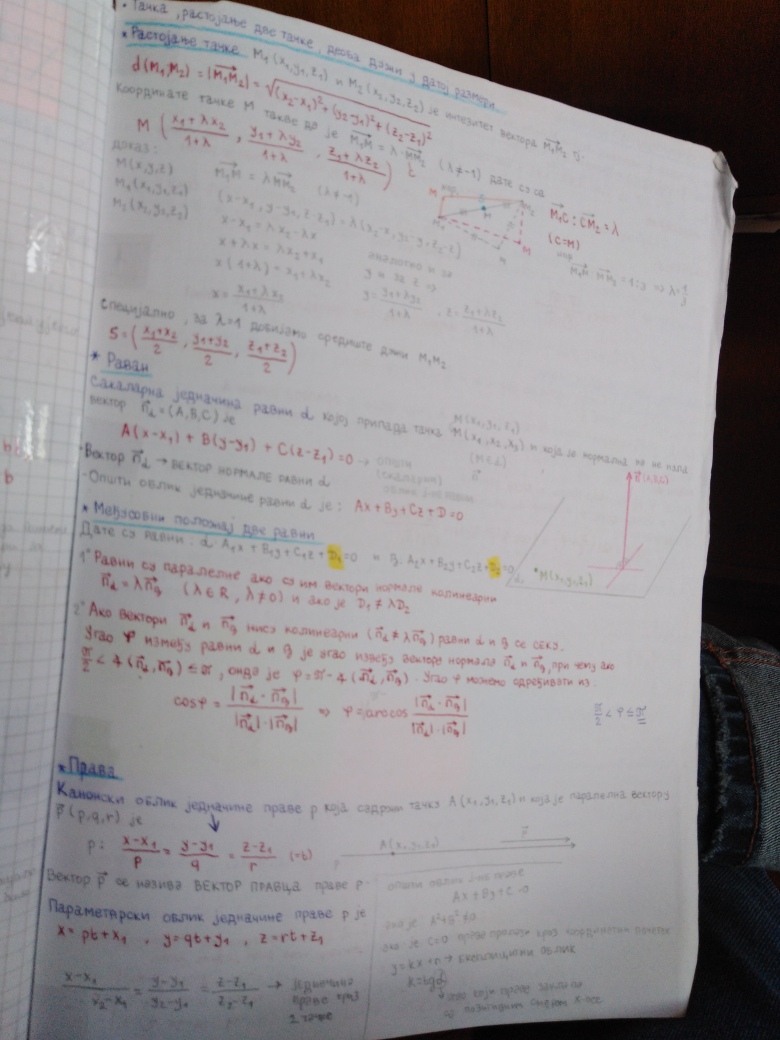 • Тачка, растојање две тачке, деоба дужи у датој размери
* Растојање тачке M₁(x₁,y₁,z₁) и M₂(x₂,y₂,z₂) је интезитет вектора M₁M₂ тј.
d(M₁,M₂) = |M₁M₂| = √(x₂-x₁)²+(y₂-y₁)²+(z₂-z₁)²
Координате тачке M такве да је M₁M = λ·MM₂ (λ≠-1) дате су са
M ( x₁+λx₂ / 1+λ , y₁+λy₂ / 1+λ , z₁+λz₂ / 1+λ )
M₁C : CM₂ = λ
(C=M)
доказ:
M(x,y,z)
M₁(x₁,y₁,z₁)
M₂(x₂,y₂,z₂)
M₁M = λMM₂ (λ≠-1)
(x-x₁, y-y₁, z-z₁) = λ(x₂-x, y₂-y, z₂-z)
x-x₁ = λx₂-λx
x+λx = λx₂+x₁
x(1+λ) = x₁+λx₂
x = x₁+λx₂ / 1+λ
аналогно и за
y и за z ⇒
y = y₁+λy₂ / 1+λ , z = z₁+λz₂ / 1+λ
Специјално, за λ=1 добијамо средиште дужи M₁M₂
S = ( x₁+x₂ / 2 , y₁+y₂ / 2 , z₁+z₂ / 2 )
* Раван
Сакаларна једначина равни α којој припада тачка M(x₁,x₂,x₃) и која је нормална на
M(x₁,y₁,z₁)
вектор n_α=(A,B,C) је
(M∈α)
A(x-x₁) + B(y-y₁) + C(z-z₁)=0 → општи
(скаларни)
-Вектор n_α → вектор нормале равни α
-Општи облик једначине равни α је: Ax+By+Cz+D=0
n(A,B,C)
M(x₁,y₁,z₁)
* Међусобни положај две равни
Дате су равни: α: A₁x+B₁y+C₁z+D₁=0 и β: A₂x+B₂y+C₂z+D₂=0
1° Равни су паралелне ако су им вектори нормале колинеарни
n_α = λn_β (λ∈R, λ≠0) и ако је D₁≠λD₂
2° Ако вектори n_α и n_β нису колинеарни (n_α≠λn_β) равни α и β се секу.
Угао φ између равни α и β је угао између вектора нормала n_α и n_β, при чему ако
π/2 < ∢(n_α,n_β) ≤ π, онда је φ=π-∢(n_α,n_β). Угао φ можемо одређивати из:
cosφ = |n_α·n_β| / |n_α|·|n_β| ⇒ φ=arccos |n_α·n_β| / |n_α|·|n_β|
π/2 < φ ≤ π
* Права
Канонски облик једначине праве p која садржи тачку A(x₁,y₁,z₁) и која је паралелна вектору
p(p,q,r) је
p: x-x₁ / p = y-y₁ / q = z-z₁ / r (=t)
p
A(x₁,y₁,z₁)
p
Вектор p се назива ВЕКТОР ПРАВЦА праве p.
Параметарски облик једначине праве p је
x = pt+x₁ , y=qt+y₁ , z=rt+z₁
x-x₁ / x₂-x₁ = y-y₁ / y₂-y₁ = z-z₁ / z₂-z₁ → једначина
праве кроз
2 тачке
општи облик ј-не праве
Ax+By+C=0
ако је A²+B²≠0
ако је C=0 права пролази кроз координатни почетак
y=kx+n → експлицитни облик
k=tgα
угао који права заклапа
са позитивним смером x-осе